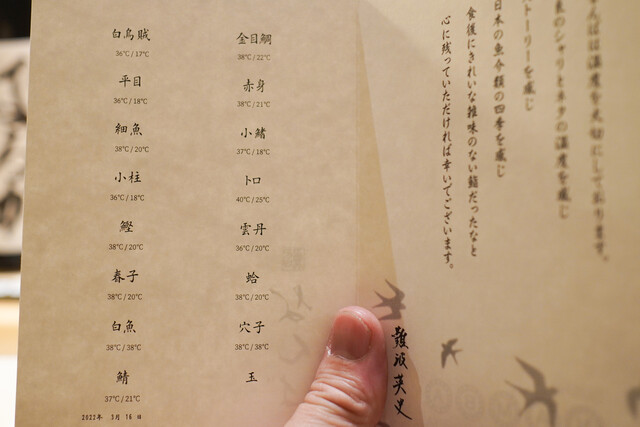 白烏賊
36℃/17℃
平目
36℃/18℃
細魚
38℃/20℃
小柱
36℃/18℃
鰹
38℃/20℃
春子
38℃/22℃
白魚
38℃/38℃
鯖
37℃/21℃
2022年 3月 16日
金目鯛
38℃/22℃
赤身
38℃/21℃
小鰭
37℃/18℃
トロ
40℃/25℃
雲丹
36℃/20℃
蛤
38℃/20℃
穴子
38℃/38℃
玉
んばは温度を大切にして居ります。
のシャリとネタの温度を感じ
ストーリーを感じ
日本の魚介類の四季を感じ
食後にきれいな雑味のない鮨だったなと
心に残っていただければ幸いでございます。
難波英史